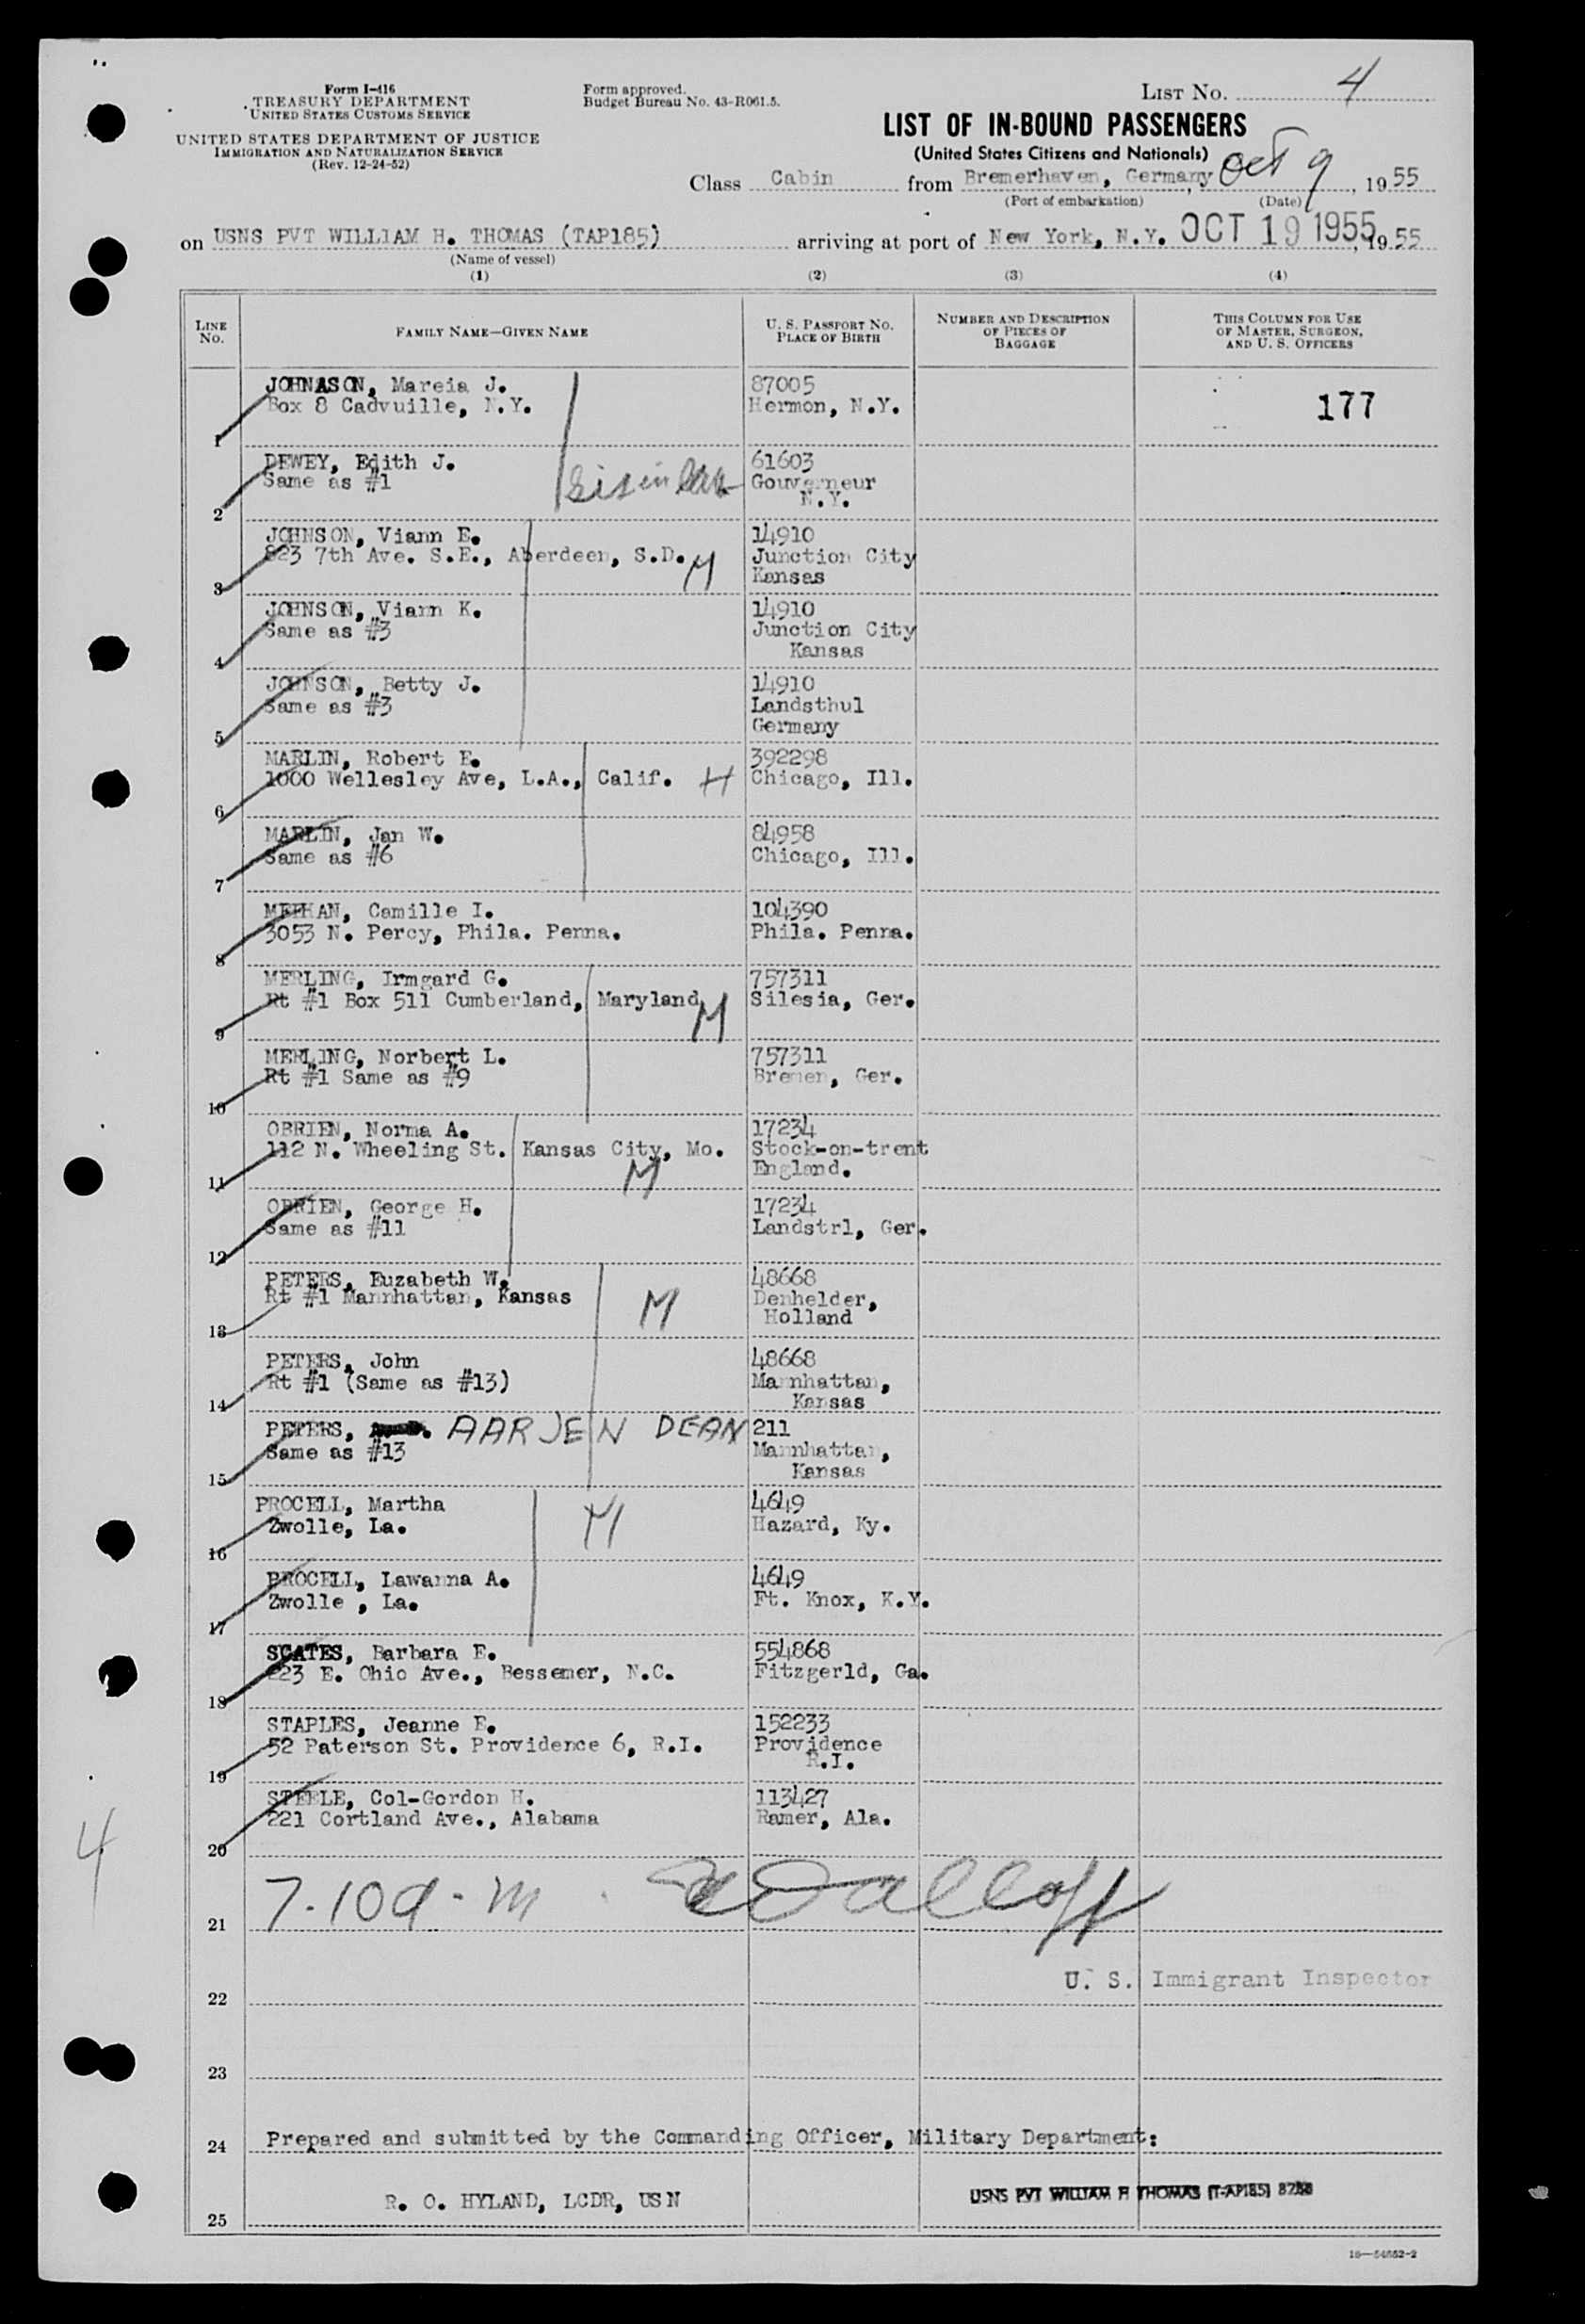 Form I-416
TREASURY DEPARTMENT
UNITED STATES CUSTOMS SERVICE
UNITED STATES DEPARTMENT OF JUSTICE
IMMIGRATION AND NATURALIZATION SERVICE
(Rev. 12-24-52)
Form approved.
Budget Bureau No. 43-R061.5.
LIST No. 4
LIST OF IN-BOUND PASSENGERS
(United States Citizens and Nationals)
Class Cabin from Bremerhaven, Germany, Oct 9, 1955
(Port of embarkation) (Date)
on USNS PVT WILLIAM H. THOMAS (TAP185) arriving at port of New York, N.Y. OCT 19 1955, 1955
(Name of vessel)
(1) (2) (3) (4)
LINE No. FAMILY NAME—GIVEN NAME U. S. PASSPORT NO. PLACE OF BIRTH NUMBER AND DESCRIPTION OF PIECES OF BAGGAGE THIS COLUMN FOR USE OF MASTER, SURGEON, AND U. S. OFFICERS
JOHNASON, Mareia J. 87005
Box 8 Cadvuille, N.Y. Hermon, N.Y. 177
1
DEWEY, Edith J. 61603
Same as #1 Gouverneur
2 N.Y.
JOHNSON, Viann E. 14910
823 7th Ave. S.E., Aberdeen, S.D. M Junction City
3 Kansas
JOHNSON, Viann K. 14910
Same as #3 Junction City
4 Kansas
JOHNSON, Betty J. 14910
Same as #3 Landsthul
5 Germany
MARLIN, Robert E. 392298
1000 Wellesley Ave, L.A., Calif. H Chicago, Ill.
6
MARLIN, Jan W. 84958
Same as #6 Chicago, Ill.
7
MEEHAN, Camille I. 104390
3053 N. Percy, Phila. Penna. Phila. Penna.
8
MERLING, Irmgard G. 757311
Rt #1 Box 511 Cumberland, Maryland M Silesia, Ger.
9
MERLING, Norbert L. 757311
Rt #1 Same as #9 Bremen, Ger.
10
OBRIEN, Norma A. 17234
112 N. Wheeling St. Kansas City, Mo. Stock-on-trent
11 M England.
OBRIEN, George H. 17234
Same as #11 Landstrl, Ger.
12
PETERS, Euzabeth W. 48668
Rt #1 Mannhattan, Kansas M Denhelder,
13 Holland
PETERS, John 48668
Rt #1 (Same as #13) Mannhattan,
14 Kansas
PETERS, AARJEN DEAN 211
Same as #13 Mannhattan,
15 Kansas
PROCELL, Martha 4649
Zwolle, La. M Hazard, Ky.
16
PROCELL, Lawanna A. 4649
Zwolle , La. Ft. Knox, K.Y.
17
SCATES, Barbara E. 554868
223 E. Ohio Ave., Bessemer, N.C. Fitzgerld, Ga.
18
STAPLES, Jeanne E. 152233
52 Paterson St. Providence 6, R.I. Providence
19 R.I.
STEELE, Col-Gordon H. 113427
221 Cortland Ave., Alabama Ramer, Ala.
20
4
7.10 a.m.
21
U. S. Immigrant Inspector
22
23
24 Prepared and submitted by the Commanding Officer, Military Department:
R. O. HYLAND, LCDR, USN USNS PVT WILLIAM H THOMAS (T-AP185)
25
16—54652-2